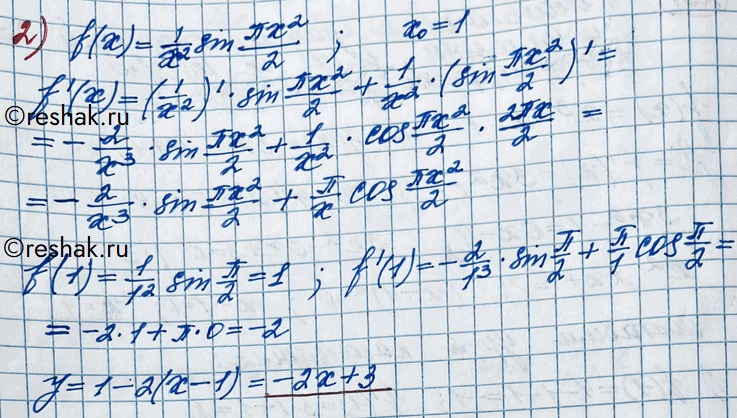 2) f(x) = 1/x² sin πx²/2 ; x₀ = 1
f'(x) = (1/x²)' · sin πx²/2 + 1/x² · (sin πx²/2)' =
= - 2/x³ · sin πx²/2 + 1/x² · cos πx²/2 · 2πx/2 =
= - 2/x³ · sin πx²/2 + π/x cos πx²/2
©reshak.ru
©reshak.ru
f(1) = 1/1² sin π/2 = 1 ; f'(1) = - 2/1³ · sin π/2 + π/1 cos π/2 =
= -2·1 + π·0 = -2
y = 1 - 2(x-1) = -2x+3